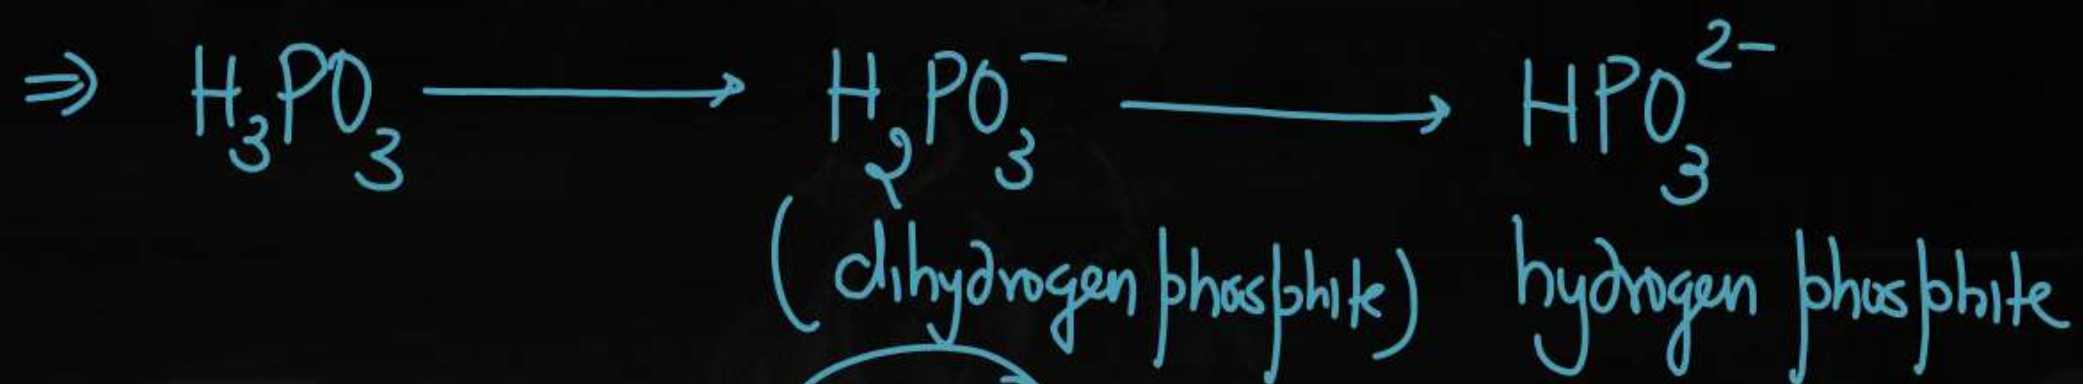 ⇒ H₃PO₃ ⟶ H₂PO₃⁻ ⟶ HPO₃²⁻
(dihydrogen phosphite) hydrogen phosphite